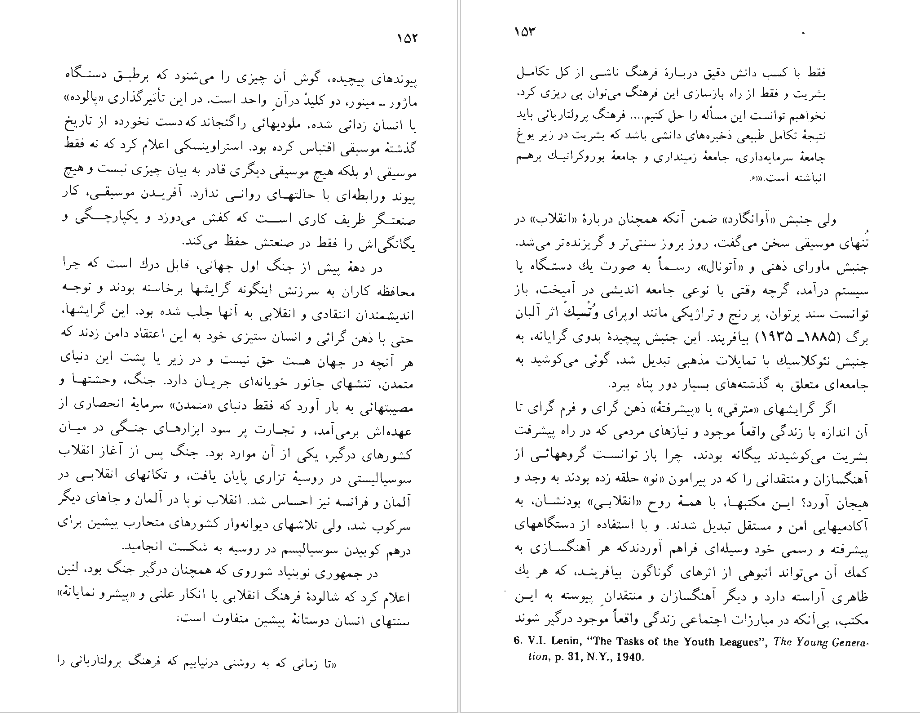 ۱۵۲
پیوندهای پیچیده، گوش آن چیزی را می‌شنود که برطبق دستگاه
ماژور ـ مینور، دو کلیدْ درآنِ واحد است. در این تأثیرگذاری «پالوده»
یا انسان زدائی شده، ملودیهائی راگنجاند که دست نخورده از تاریخ
گذشتهٔ موسیقی اقتباس کرده بود. استراوینسکی اعلام کرد که نه فقط
موسیقی او بلکه هیچ موسیقی دیگری قادر به بیان چیزی نیست و هیچ
پیوند ورابطه‌ای با حالتهای روانی ندارد. آفریدن موسیقی، کار
صنعتگر ظریف کاری است که کفش می‌دوزد و یکپارچگی و
یگانگی‌اش را فقط در صنعتش حفظ می‌کند.
در دههٔ پیش از جنگ اول جهانی، قابل درك است که چرا
محافظه کاران به سرزنش اینگونه گرایشها برخاسته بودند و توجه
اندیشمندان انتقادی و انقلابی به آنها جلب شده بود. این گرایشها،
حتی با ذهن گرائی و انسان ستیزی خود به این اعتقاد دامن زدند که
هر آنچه در جهان هست حق نیست و در زیر یا پشت این دنیای
متمدن، تنشهای جانور خویانه‌ای جریان دارد. جنگ، وحشتها و
مصیبتهائی به بار آورد که فقط دنیای «متمدن» سرمایهٔ انحصاری از
عهده‌اش برمی‌آمد، و تجارت پر سود ابزارهای جنگی در میان
کشورهای درگیر، یکی از آن موارد بود. جنگ پس از آغاز انقلاب
سوسیالیستی در روسیهٔ تزاری پایان یافت، و تکانهای انقلابی در
آلمان و فرانسه نیز احساس شد. انقلاب نوپا در آلمان و جاهای دیگر
سرکوب شد، ولی تلاشهای دیوانه‌وار کشورهای متحارب پیشین برای
درهم کوبیدن سوسیالیسم در روسیه به شکست انجامید.
در جمهوری نوبنیاد شوروی که همچنان درگیر جنگ بود، لنین
اعلام کرد که شالودهٔ فرهنگ انقلابی یا انکار علنی و «پیشرو نمایانهٔ»
سنتهای انسان دوستانهٔ پیشین متفاوت است:
«تا زمانی که به روشنی درنیابیم که فرهنگ پرولتاریائی را
۱۵۳
فقط با کسب دانش دقیق دربارهٔ فرهنگ ناشی از کل تکامل
بشریت و فقط از راه بازسازی این فرهنگ می‌توان پی ریزی کرد،
نخواهیم توانست این مسأله را حل کنیم.... فرهنگ پرولتاریائی باید
نتیجهٔ تکامل طبیعی ذخیره‌های دانشی باشد که بشریت در زیر یوغ
جامعهٔ سرمایه‌داری، جامعهٔ زمینداری و جامعهٔ بوروکراتیك برهم
انباشته است.»
ولی جنبش «آوانگارد» ضمن آنکه همچنان دربارهٔ «انقلاب» در
تُنهای موسیقی سخن می‌گفت، روز بروز سنتی‌تر و گریزنده‌تر می‌شد.
جنبش ماورای ذهنی و «آتونال»، رسماً به صورت یك دستگاه یا
سیستم درآمد، گرچه وقتی با نوعی جامعه اندیشی در آمیخت، باز
توانست سند پرتوان، پر رنج و تراژیکی مانند اوپرای وُتْسِك اثر آلبان
برگ (۱۸۸۵ـ ۱۹۳۵) بیافریند. این جنبش پیچیدهٔ بدوی گرایانه، به
جنبش نئوکلاسیك با تمایلات مذهبی تبدیل شد، گوئی می‌کوشید به
جامعه‌ای متعلق به گذشته‌های بسیار دور پناه ببرد.
اگر گرایشهای «مترقی» یا «پیشرفتهٔ» ذهن گرای و فرم گرای تا
آن اندازه با زندگی واقعاً موجود و نیازهای مردمی که در راه پیشرفت
بشریت می‌کوشیدند بیگانه بودند، چرا باز توانست گروههائی از
آهنگسازان و منتقدانی را که در پیرامون «نو» حلقه زده بودند به وجد و
هیجان آورد؟ این مکتبها، با همهٔ روح «انقلابی» بودنشان، به
آکادمیهایی امن و مستقل تبدیل شدند. و با استفاده از دستگاههای
پیشرفته و رسمی خود وسیله‌ای فراهم آوردندکه هر آهنگسازی به
کمك آن می‌تواند انبوهی از اثرهای گوناگون بیافریند، که هر یك
ظاهری آراسته دارد و دیگر آهنگسازان و منتقدانِ پیوسته به این
مکتب، بی‌آنکه در مبارزات اجتماعی زندگی واقعاً موجود درگیر شوند
6. V.I. Lenin, "The Tasks of the Youth Leagues", The Young Genera-
tion, p. 31, N.Y., 1940.